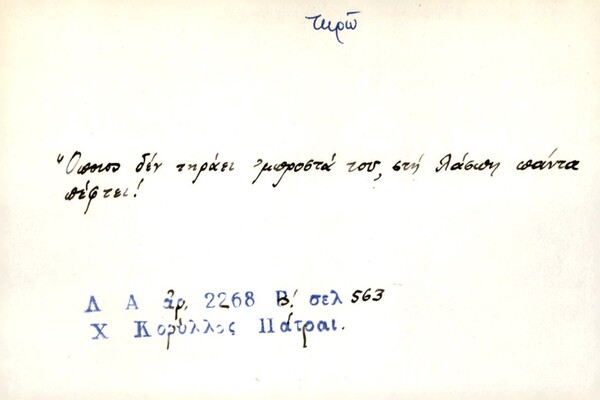 τηρῶ
Ὅποιος δέν τηράει 'μπροστά του, στή λάσπη πάντα
πέφτει!
Λ Α ἀρ. 2268 Β! σελ 563
Χ Κορύλλος Πάτραι.